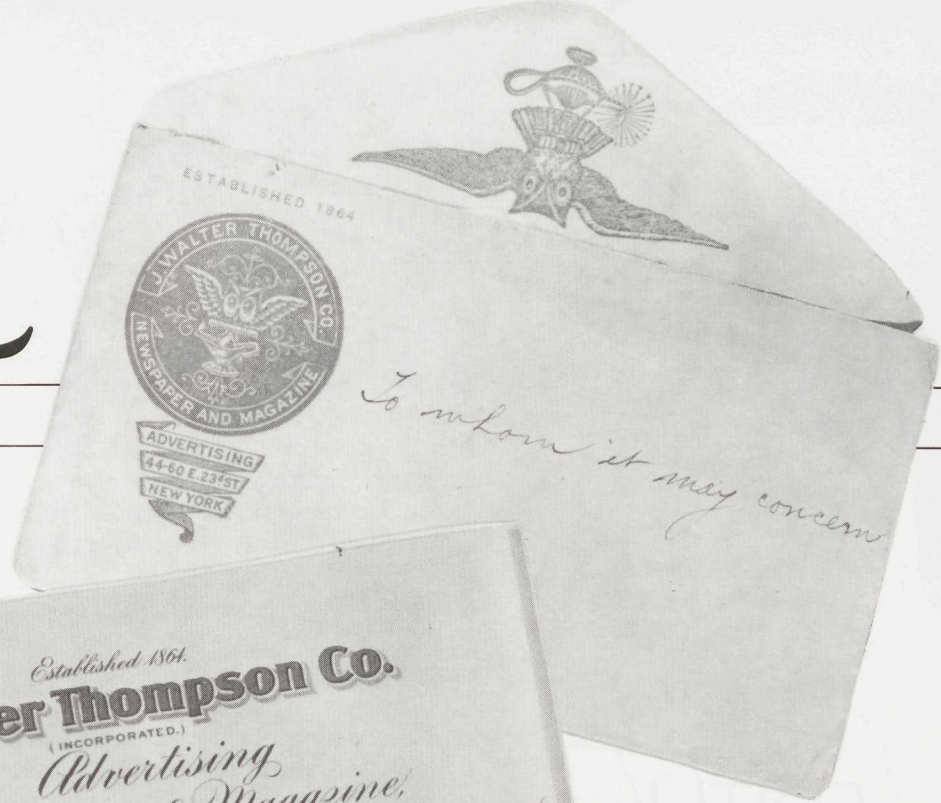 ESTABLISHED 1864
J. WALTER THOMPSON CO.
NEWSPAPER AND MAGAZINE
ADVERTISING
44-60 E. 23d ST
NEW YORK
To whom it may concern
Established 1864.
er Thompson Co.
(INCORPORATED.)
Advertising
Magazine,